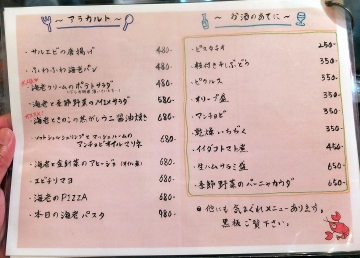 ～アラカルト～
・サルエビの唐揚げ 480-
・ふわふわ海老パン 480-
・海老クリームのポテトサラダ 480-
・海老と季節野菜のMIXサラダ 580-
・海老ときのこの焦がしウニ醤油焼き 680-
・ソフトシェルシュリンプとマッシュルームの
アンチョビオイルマリネ 680-
・海老と金針菜のアヒージョ 680-
・エビチリマヨ 680-
・海老のPIZZA 680-
・本日の海老パスタ 980-
～お酒のあてに～
・ピスタチオ 250-
・枝付き干しぶどう 350-
・ピクルス 350-
・オリーブ盛 350-
・アンチョビ 350-
・乾燥いちぢく 350-
・イイダコトマト煮 450-
・生ハムサラミ盛 650-
・季節野菜のバーニャカウダ 650-
●他にも気まぐれメニューあります。
黒板ご覧下さい。